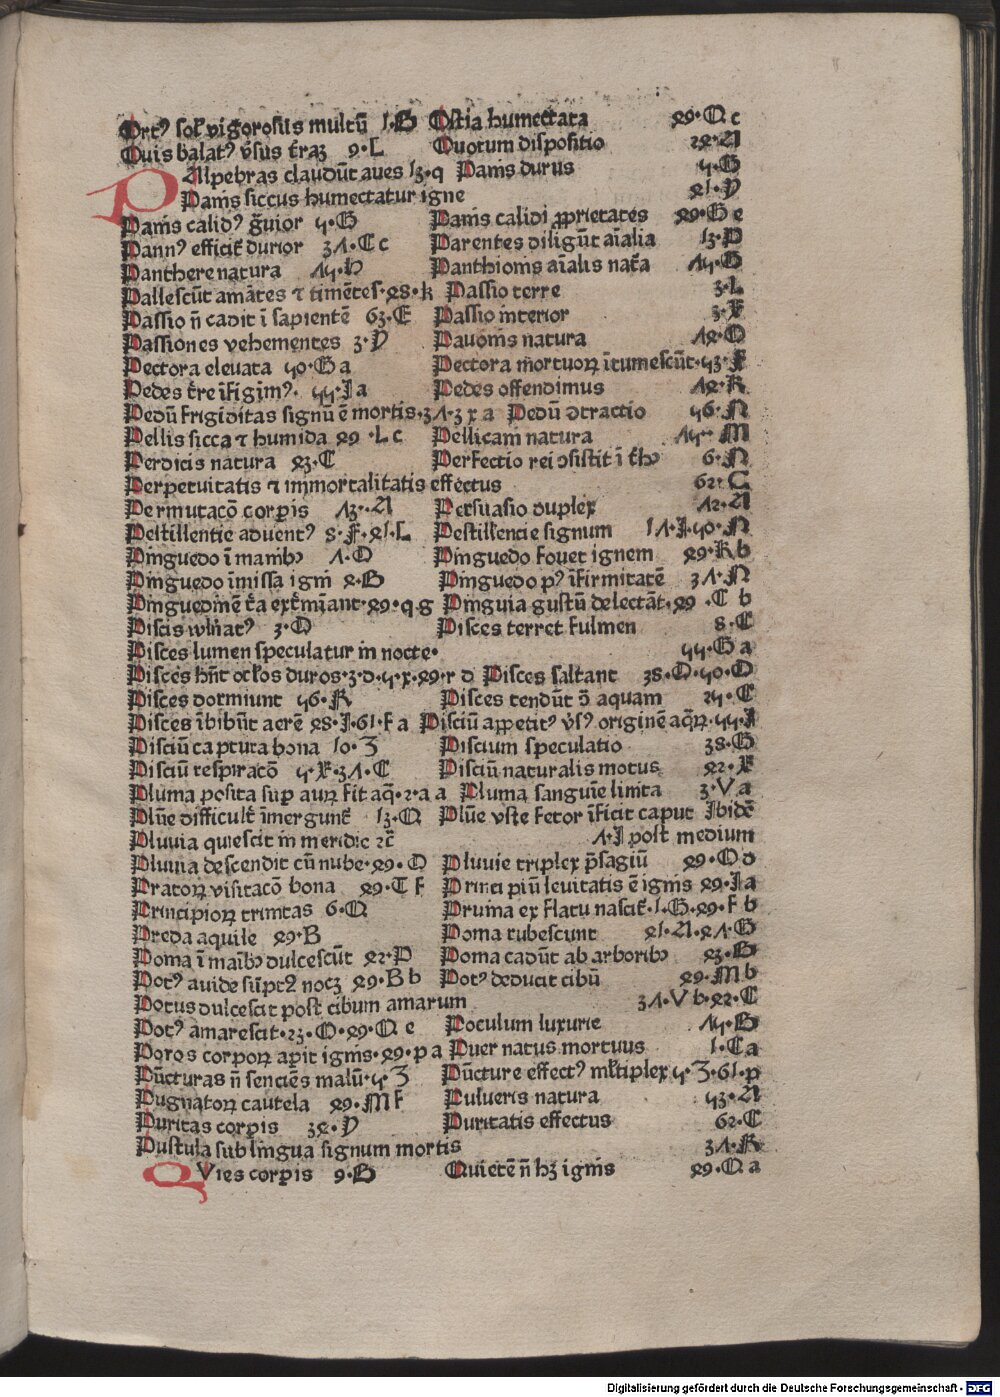 Ortꝰ sol' vigorosus multū 1·G Ostia humectata 29·Q c
Ouis balatꝰ v̄sus t̄raꝫ 9·L Quotum dispositio 22·A
PAlpebras claudūt aues 13·q Panis durus 5·G
Panis siccus humectatur igne 21·Y
Panis calidꝰ g̃uior 5·G Panis calidi ꝓprietates 29·G e
Pannꝰ effícit̄ durior 31·C c Parentes diligūt aīalia 13·P
Panthere natura 15·h Panthionis aīalis nat̃a 15·G
Pallescūt amātes ⁊ timētes·28·k Passio terre 3·L
Passio n̄ cadit ī sapientē 63·E Passio interior 3·X
Passiones vehementes 3·Y Pauonis natura 12·O
Pectora eleuata 50·G a Pectora mortuoꝝ ītumescūt·53·F
Pedes t̄re īfigimꝰ· 55·I a Pedes offendimus 12·R
Pedū frigiditas signū ē mortis·31·3 x a Pedū ↄtractio 56·N
Pellis sicca ⁊ humida 29·L c Pellicani natura 15·M
Perdicis natura 23·C Perfectio rei ↄsistit ī t̄bꝰ 6·N
Perpetuitatis ⁊ immortalitatis effectus 62·C
Permutacō corꝑis 13·A Persuasio duplex 12·A
Pestillentie aduentꝰ 8·F·21·L Pestillencie signum 11·I·50·N
Pinguedo ī manibꝰ 1·O Pinguedo fouet ignem 29·R b
Pinguedo īmissa igni 2·B Pinguedo pꝰ īfirmitatē 31·N
Pinguedinē t̄a ext̄miant·29·q g Pinguia gustū delectāt·29·C b
Piscis wln̄atꝰ 3·O Pisces terret fulmen 8·C
Pisces lumen speculatur in nocte· 55·G a
Pisces hn̄t oc'los duros·3·d·5·x·29·r d Pisces saltant 38·O·50·O
Pisces dormiunt 56·R Pisces tendūt ↄ̄ aquam 25·C
Pisces ībibūt aerē 28·I·61·f a Pisciū appetitꝰ v̄sꝰ originē aq̄ꝝ·55·I
Pisciū captura bona 10·Z Piscium speculatio 38·G
Pisciū respiracō 5·X·31·C Pisciū naturalis motus 22·X
Pluma posita suꝑ aurū fit aq̄·2·a a Pluma sanguīe linita 3·V a
Plūe difficult̄ īmergunt̄ 13·Q Plūe vste fetor īficit caput Ibidē
Pluuia quiescit in meridie ⁊c̄ 1·I post medium
Pluuia descendit cū nube·29·O Pluuie triplex p̄sagiū 29·O o
Pratoꝝ visitacō bona 29·T f Principiū leuitatis ē ignis 29·I a
Principioꝝ trinitas 6·Q Pruina ex flatu nascit̄·1·G·29·f b
Preda aquile 29·B Poma rubescunt 21·A·21·G
Poma ī maībꝰ dulcescūt 22·P Poma cadūt ab arboribꝰ 23·B
Potꝰ auide sūptꝰ nocꝫ 29·B b Potꝰ deducit cibū 29·M b
Potus dulcescit post cibum amarum 31·V b·22·C
Potꝰ amarescit·23·O·29·Q e Poculum luxurie 15·B
Poros corpoꝝ aꝑit ignis·29·p a Puer natus mortuus 1·C a
Pūcturas n̄ senciēs malū·5·Z Pūcture effectꝰ ml'tiplex 5·Z·61·p
Pugnatoꝝ cautela 29·M f Pulueris natura 53·A
Puritas corꝑis 32·Y Puritatis effectus 62·C
Pustula sub lingua signum mortis 31·R
QVies corꝑis 9·B Quietē n̄ hꝫ ignis 29·Q a
Digitalisierung gefördert durch die Deutsche Forschungsgemeinschaft - DFG